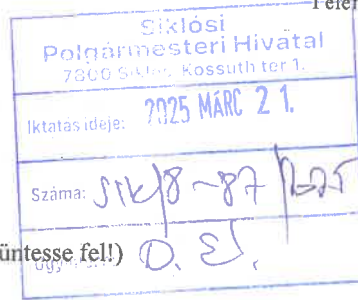 Telef
Siklósi
Polgármesteri Hivatal
7800 Siklós, Kossuth tér 1.
Iktatás ideje: 2025 MÁRC 21.
Száma: SIK/8-87/2025
üntesse fel!)
D. E.